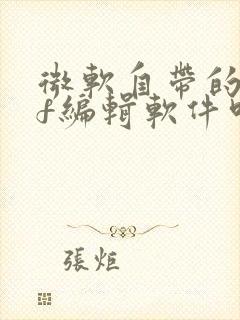 微軟自帶的
f編輯軟件
張炬